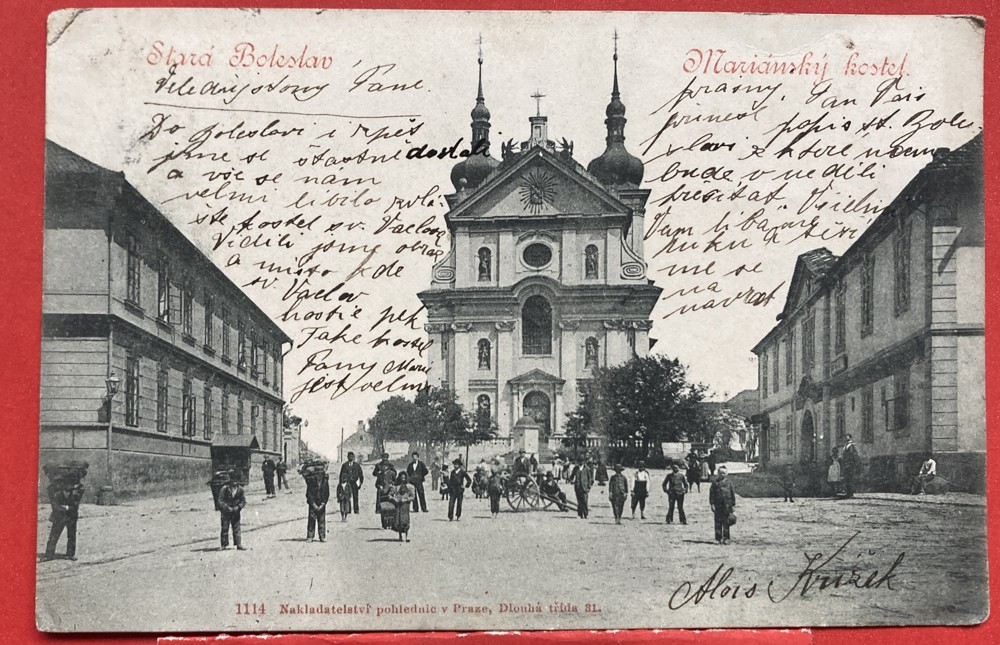 Stará Boleslav
Mariánský kostel.
Veledůstojný Pane.
Do Boleslavi i zpět
jsme se šťastně dostali
a vše se nám
velmi líbilo zvlá-
ště kostel sv. Václava
Viděli jsme obraz
a místo kde
sv. Václav
hostie pek
Také kostel
Panny Marie
jest velmi
krásný. Pan
přinesl popis st. Bole-
slavi z které
bude v neděli
Všichni
Vám líbáme
ruku a těší-
me se
na
návrat
Alois Křížek
1114 Nakladatelství pohlednic v Praze, Dlouhá třída 31.